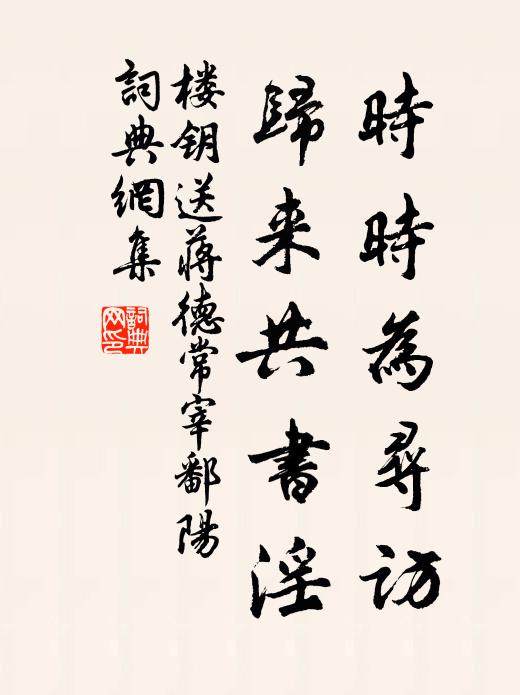 時時為尋訪
歸来共書淫
楼钥送蒋德常宰鄱陽
詞典網集
詞典
网印